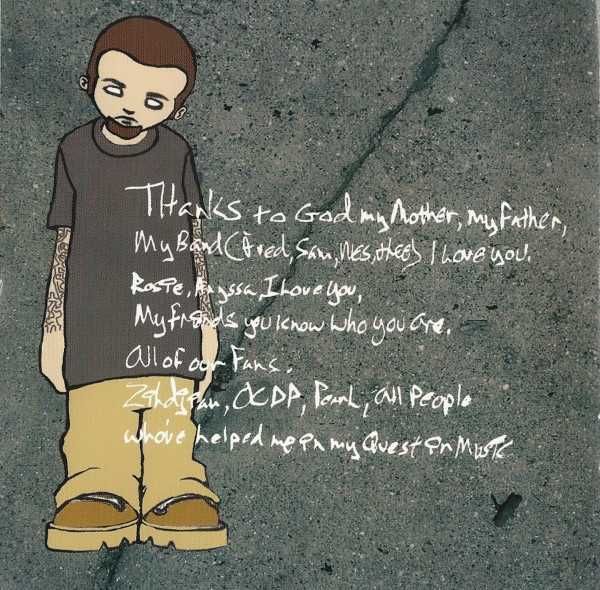 THanks to God my Mother, my Father,
My Band (Fred, Sam, Wes, Lethal) I Love you.
Rosie, Alyssa, I Love you,
My Friends you know who you are.
All of our Fans.
Zildjian, OCDP, Pearl, All People
who've helped me in my Quest in Music